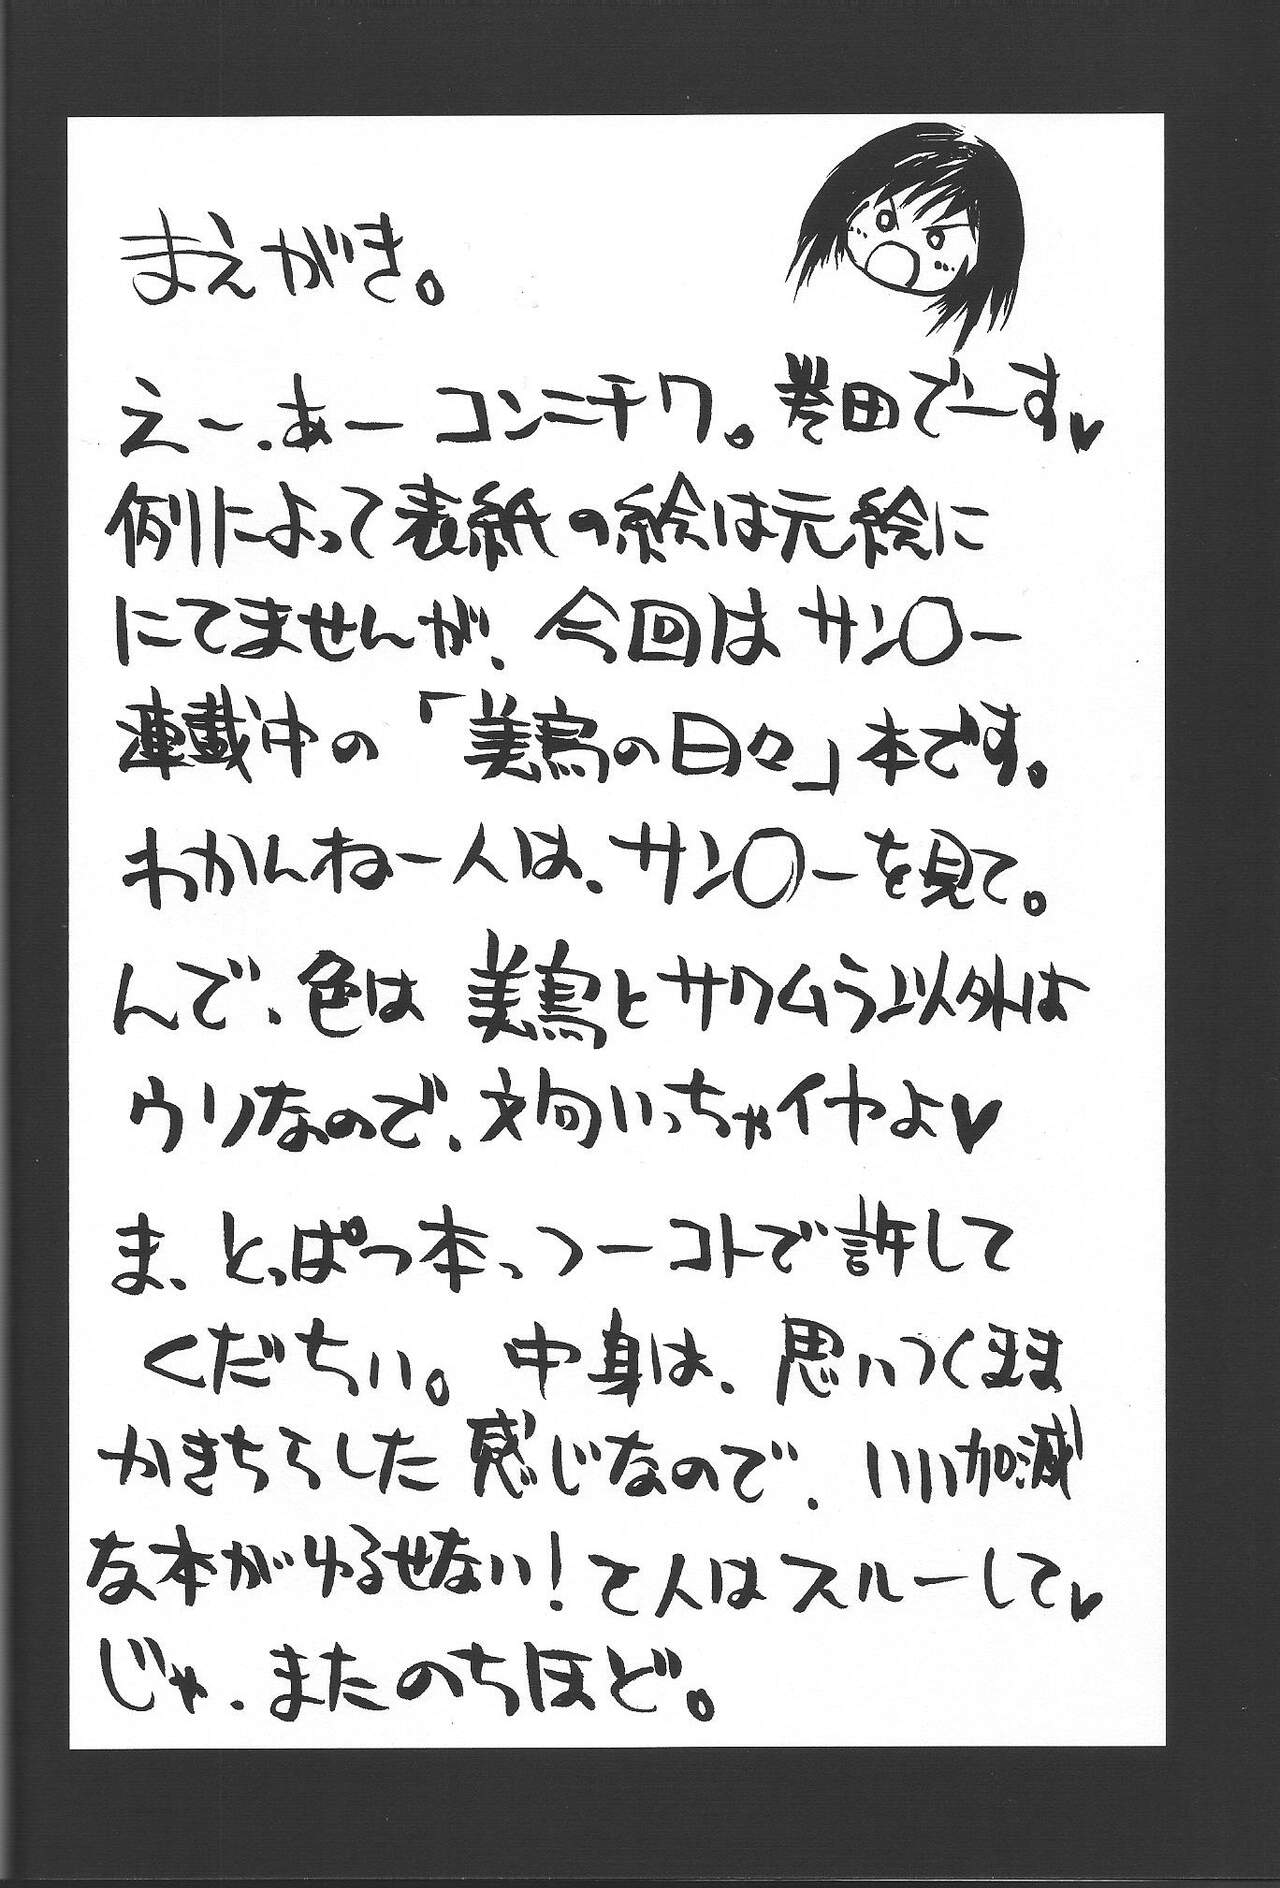 まえがき。
えー、あー コンニチワ。巻田でーす♥
例によって表紙の絵は元絵に
にてませんが、今回は サン〇ー
連載中の「美鳥の日々」本です。
わかんねー人は、サン〇ーを見て。
んで、色は 美鳥とサワムラ以外は
ウソなので、文句いっちゃイヤよ♥
ま、とっぱつ本っつーコトで許して
くだちい。中身は、思いつくまま
かきちらした感じなので、いい加減
な本がゆるせない！て人はスルーして♥
じゃ、またのちほど。